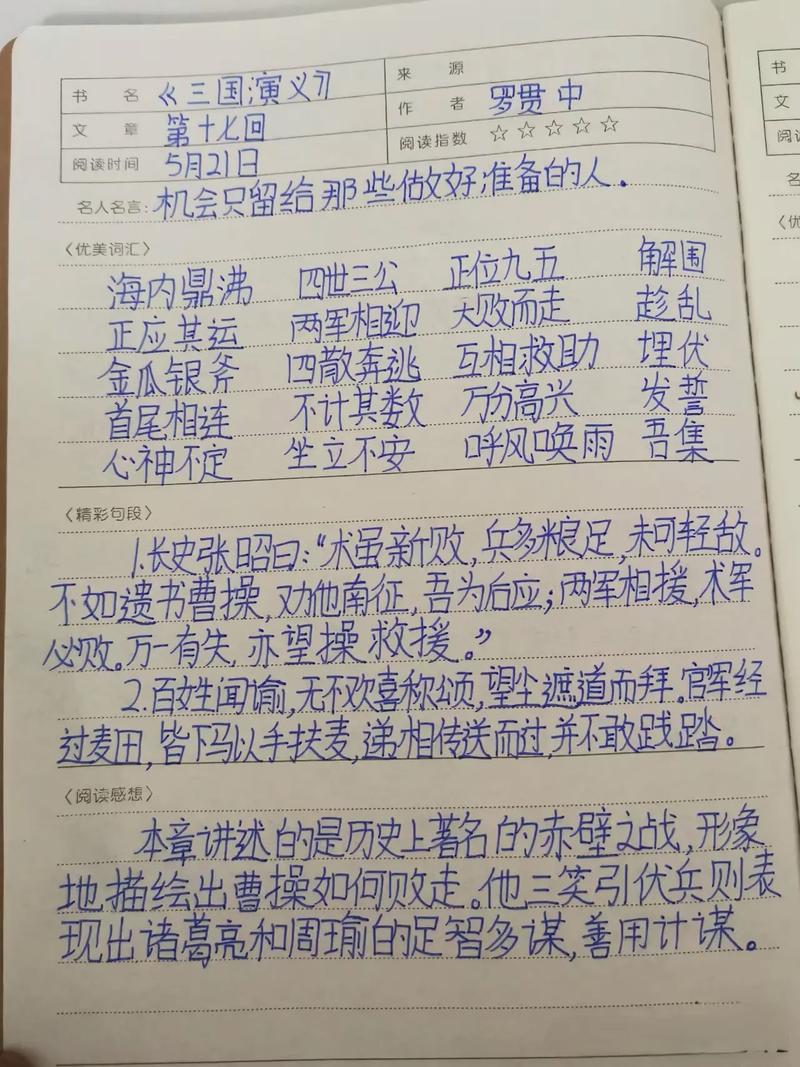 书 名 《三国演义》 来 源
文 章 第十七回 作 者 罗贯中
阅读时间 5月21日 阅读指数 ☆☆☆☆☆
名人名言: 机会只留给那些做好准备的人.
〈优美词汇〉
海内鼎沸 四世三公 正位九五 解围
正应其运 两军相迎 大败而走 趁乱
金瓜银斧 四散奔逃 互相救助 埋伏
首尾相连 不计其数 万分高兴 发誓
心神不定 坐立不安 呼风唤雨 吾集
〈精彩句段〉
1.长史张昭曰:“术虽新败,兵多粮足,未可轻敌。
不如遗书曹操,劝他南征,吾为后应;两军相援,术军
必败。万一有失,亦望操救援。”
2.百姓闻谕,无不欢喜称颂,望尘遮道而拜。官军经
过麦田,皆下马以手扶麦,递相传送而过,并不敢践踏。
〈阅读感想〉
本章讲述的是历史上著名的赤壁之战,形象
地描绘出曹操如何败走。他三笑引伏兵则表
现出诸葛亮和周瑜的足智多谋,善用计谋。
书
文
阅